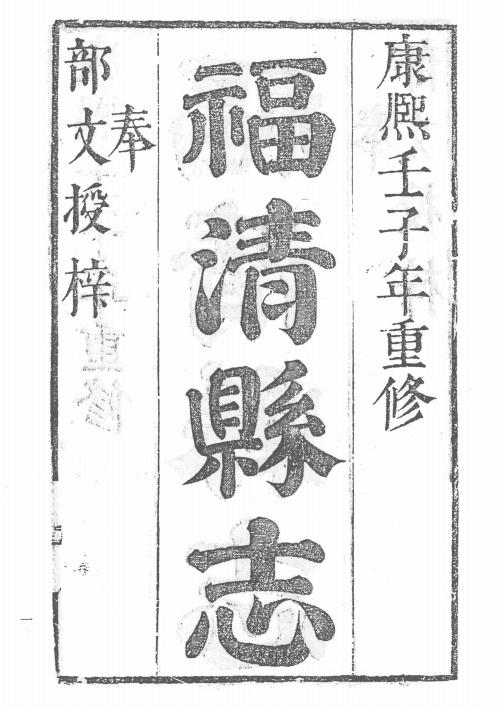 康熈壬子年重修
福清縣志
奉
部文授梓
一